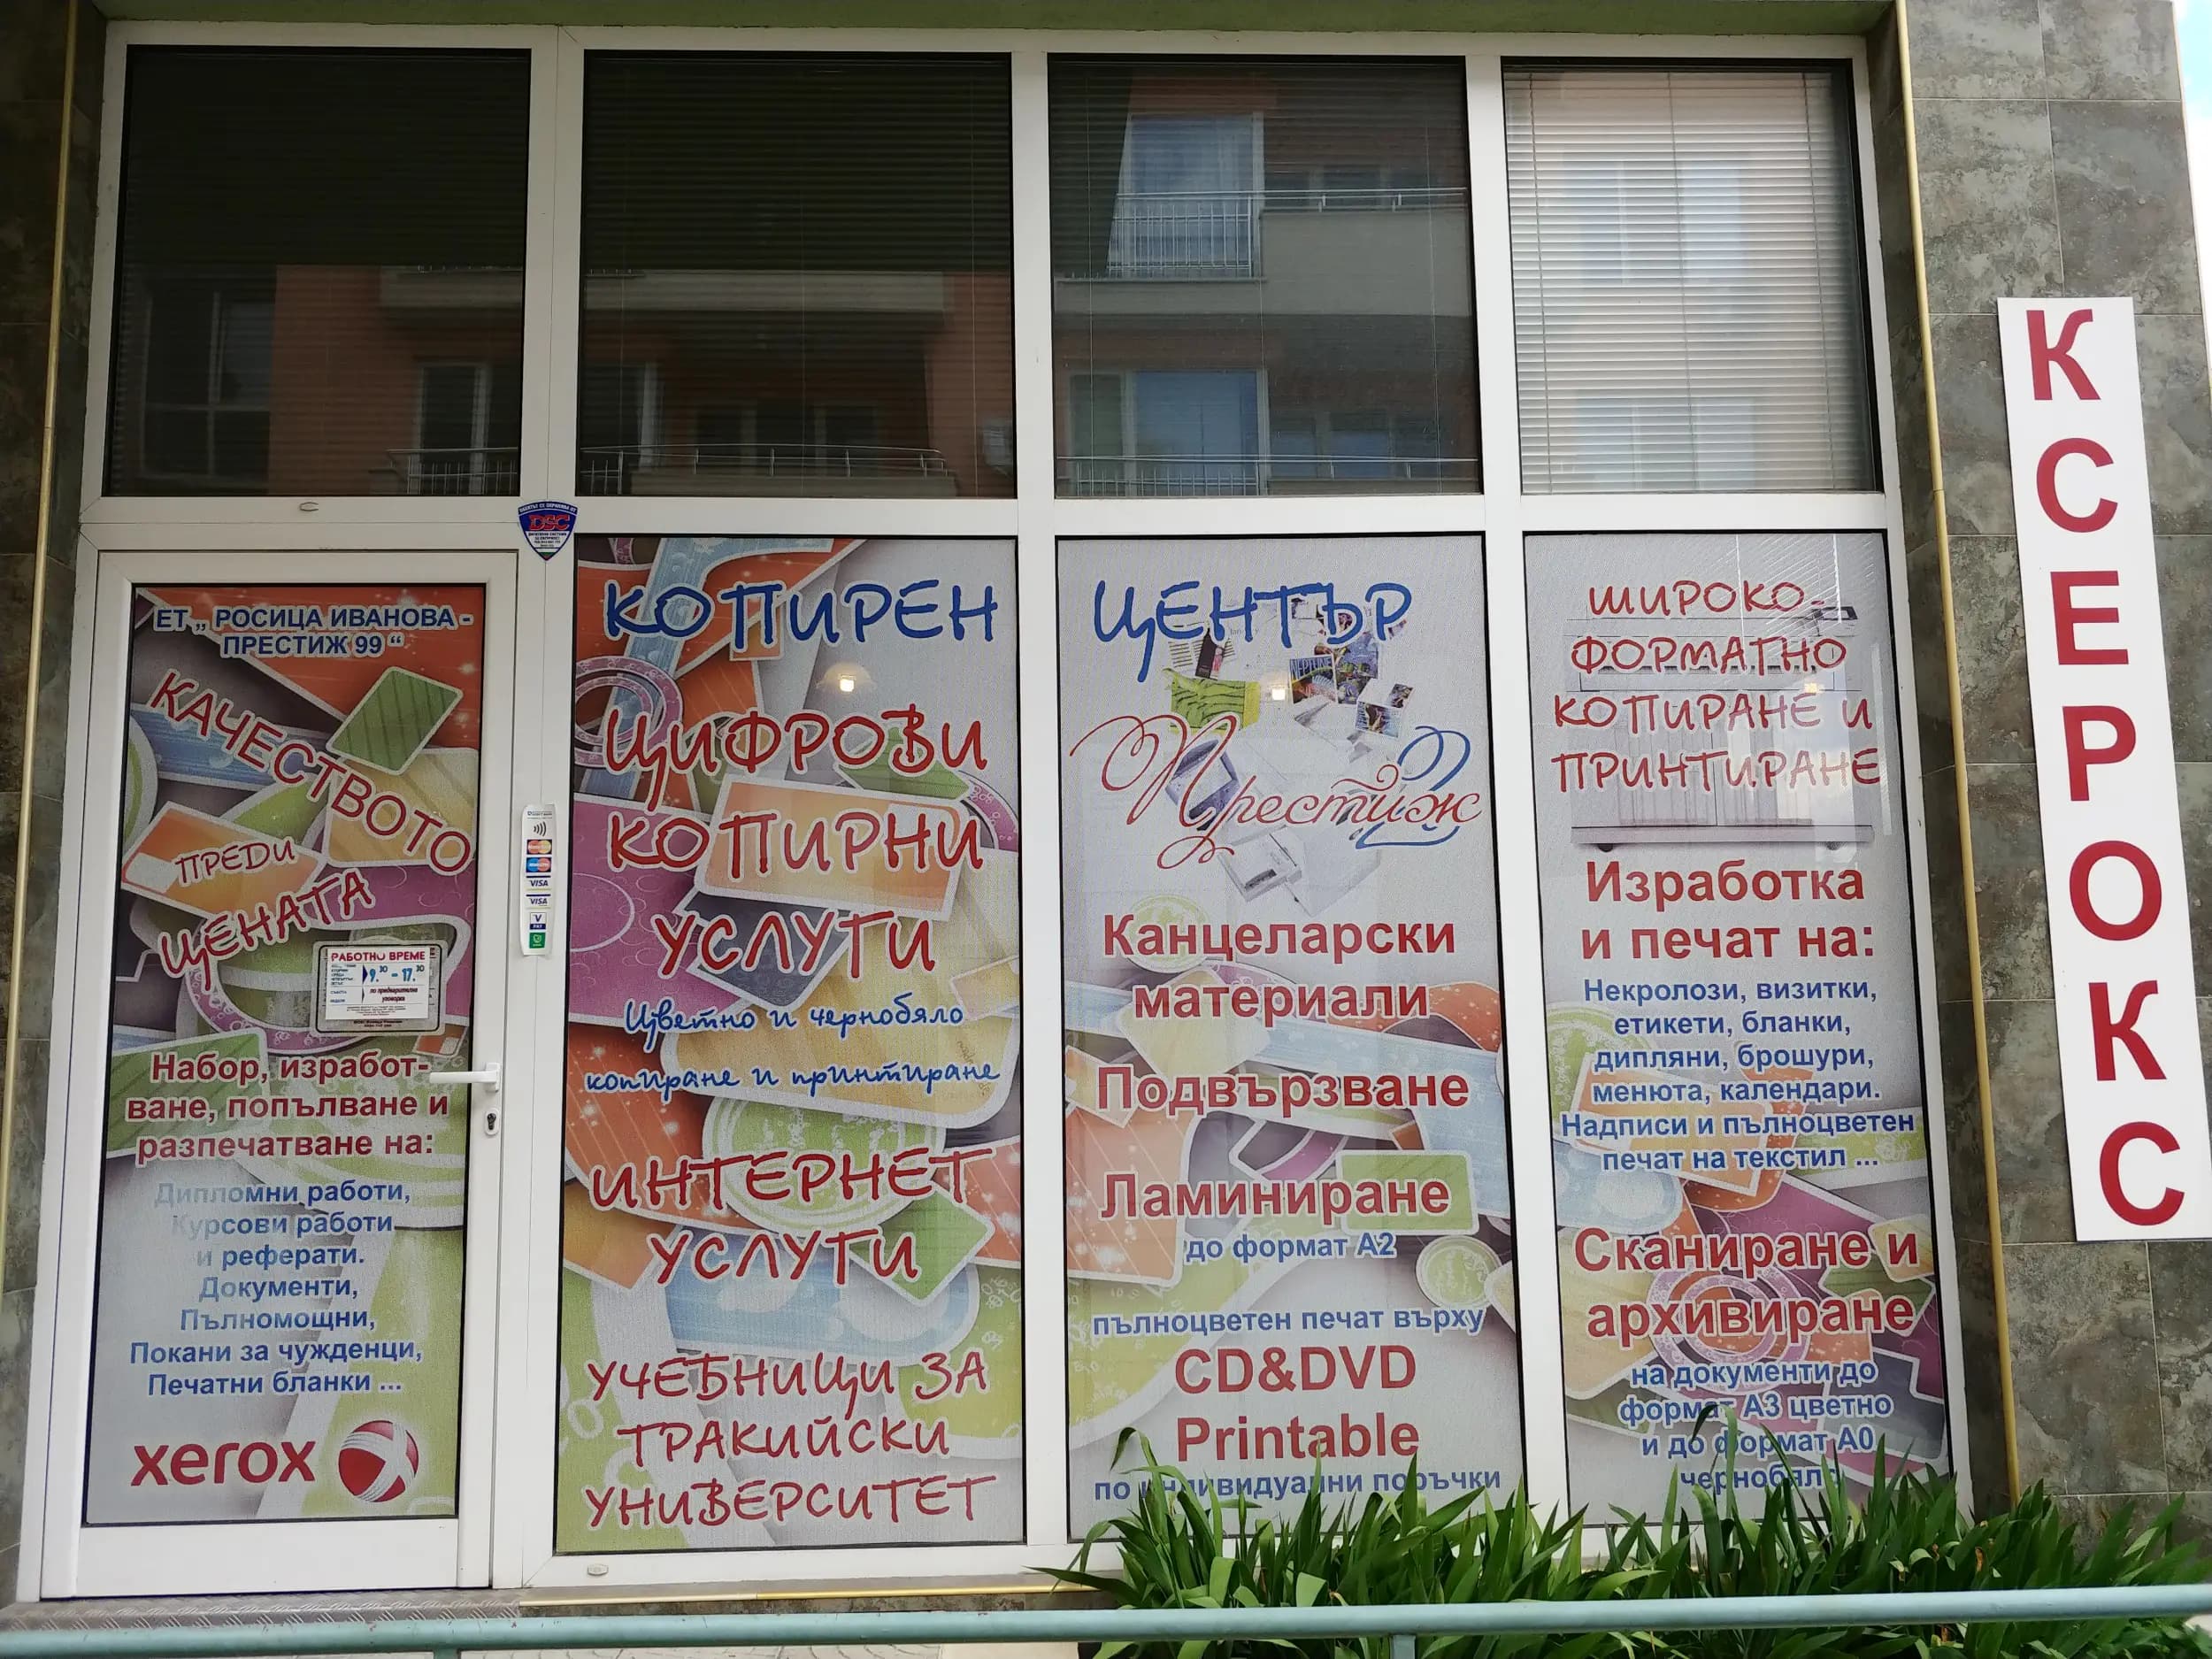 ЕТ „ РОСИЦА ИВАНОВА -
ПРЕСТИЖ 99 “
КАЧЕСТВОТО
ПРЕДИ
ЦЕНАТА
РАБОТНО ВРЕМЕ
9.30 - 17.30
по предварителна
уговорка
Набор, изработ-
ване, попълване и
разпечатване на:
Дипломни работи,
Курсови работи
и реферати.
Документи,
Пълномощни,
Покани за чужденци,
Печатни бланки ...
xerox
DSC
VISA
VISA
V
PAY
КОПИРЕН
ЦИФРОВИ
КОПИРНИ
УСЛУГИ
Цветно и чернобяло
копиране и принтиране
ИНТЕРНЕТ
УСЛУГИ
УЧЕБНИЦИ ЗА
ТРАКИЙСКИ
УНИВЕРСИТЕТ
ЦЕНТЪР
NEPTUNE
Престиж
2
Канцеларски
материали
Подвързване
Ламиниране
до формат А2
пълноцветен печат върху
CD&DVD
Printable
по индивидуални поръчки
ШИРОКО-
ФОРМАТНО
КОПИРАНЕ И
ПРИНТИРАНЕ
Изработка
и печат на:
Некролози, визитки,
етикети, бланки,
дипляни, брошури,
менюта, календари.
Надписи и пълноцветен
печат на текстил ...
Сканиране и
архивиране
на документи до
формат А3 цветно
и до формат А0
чернобяло
КСЕРОКС